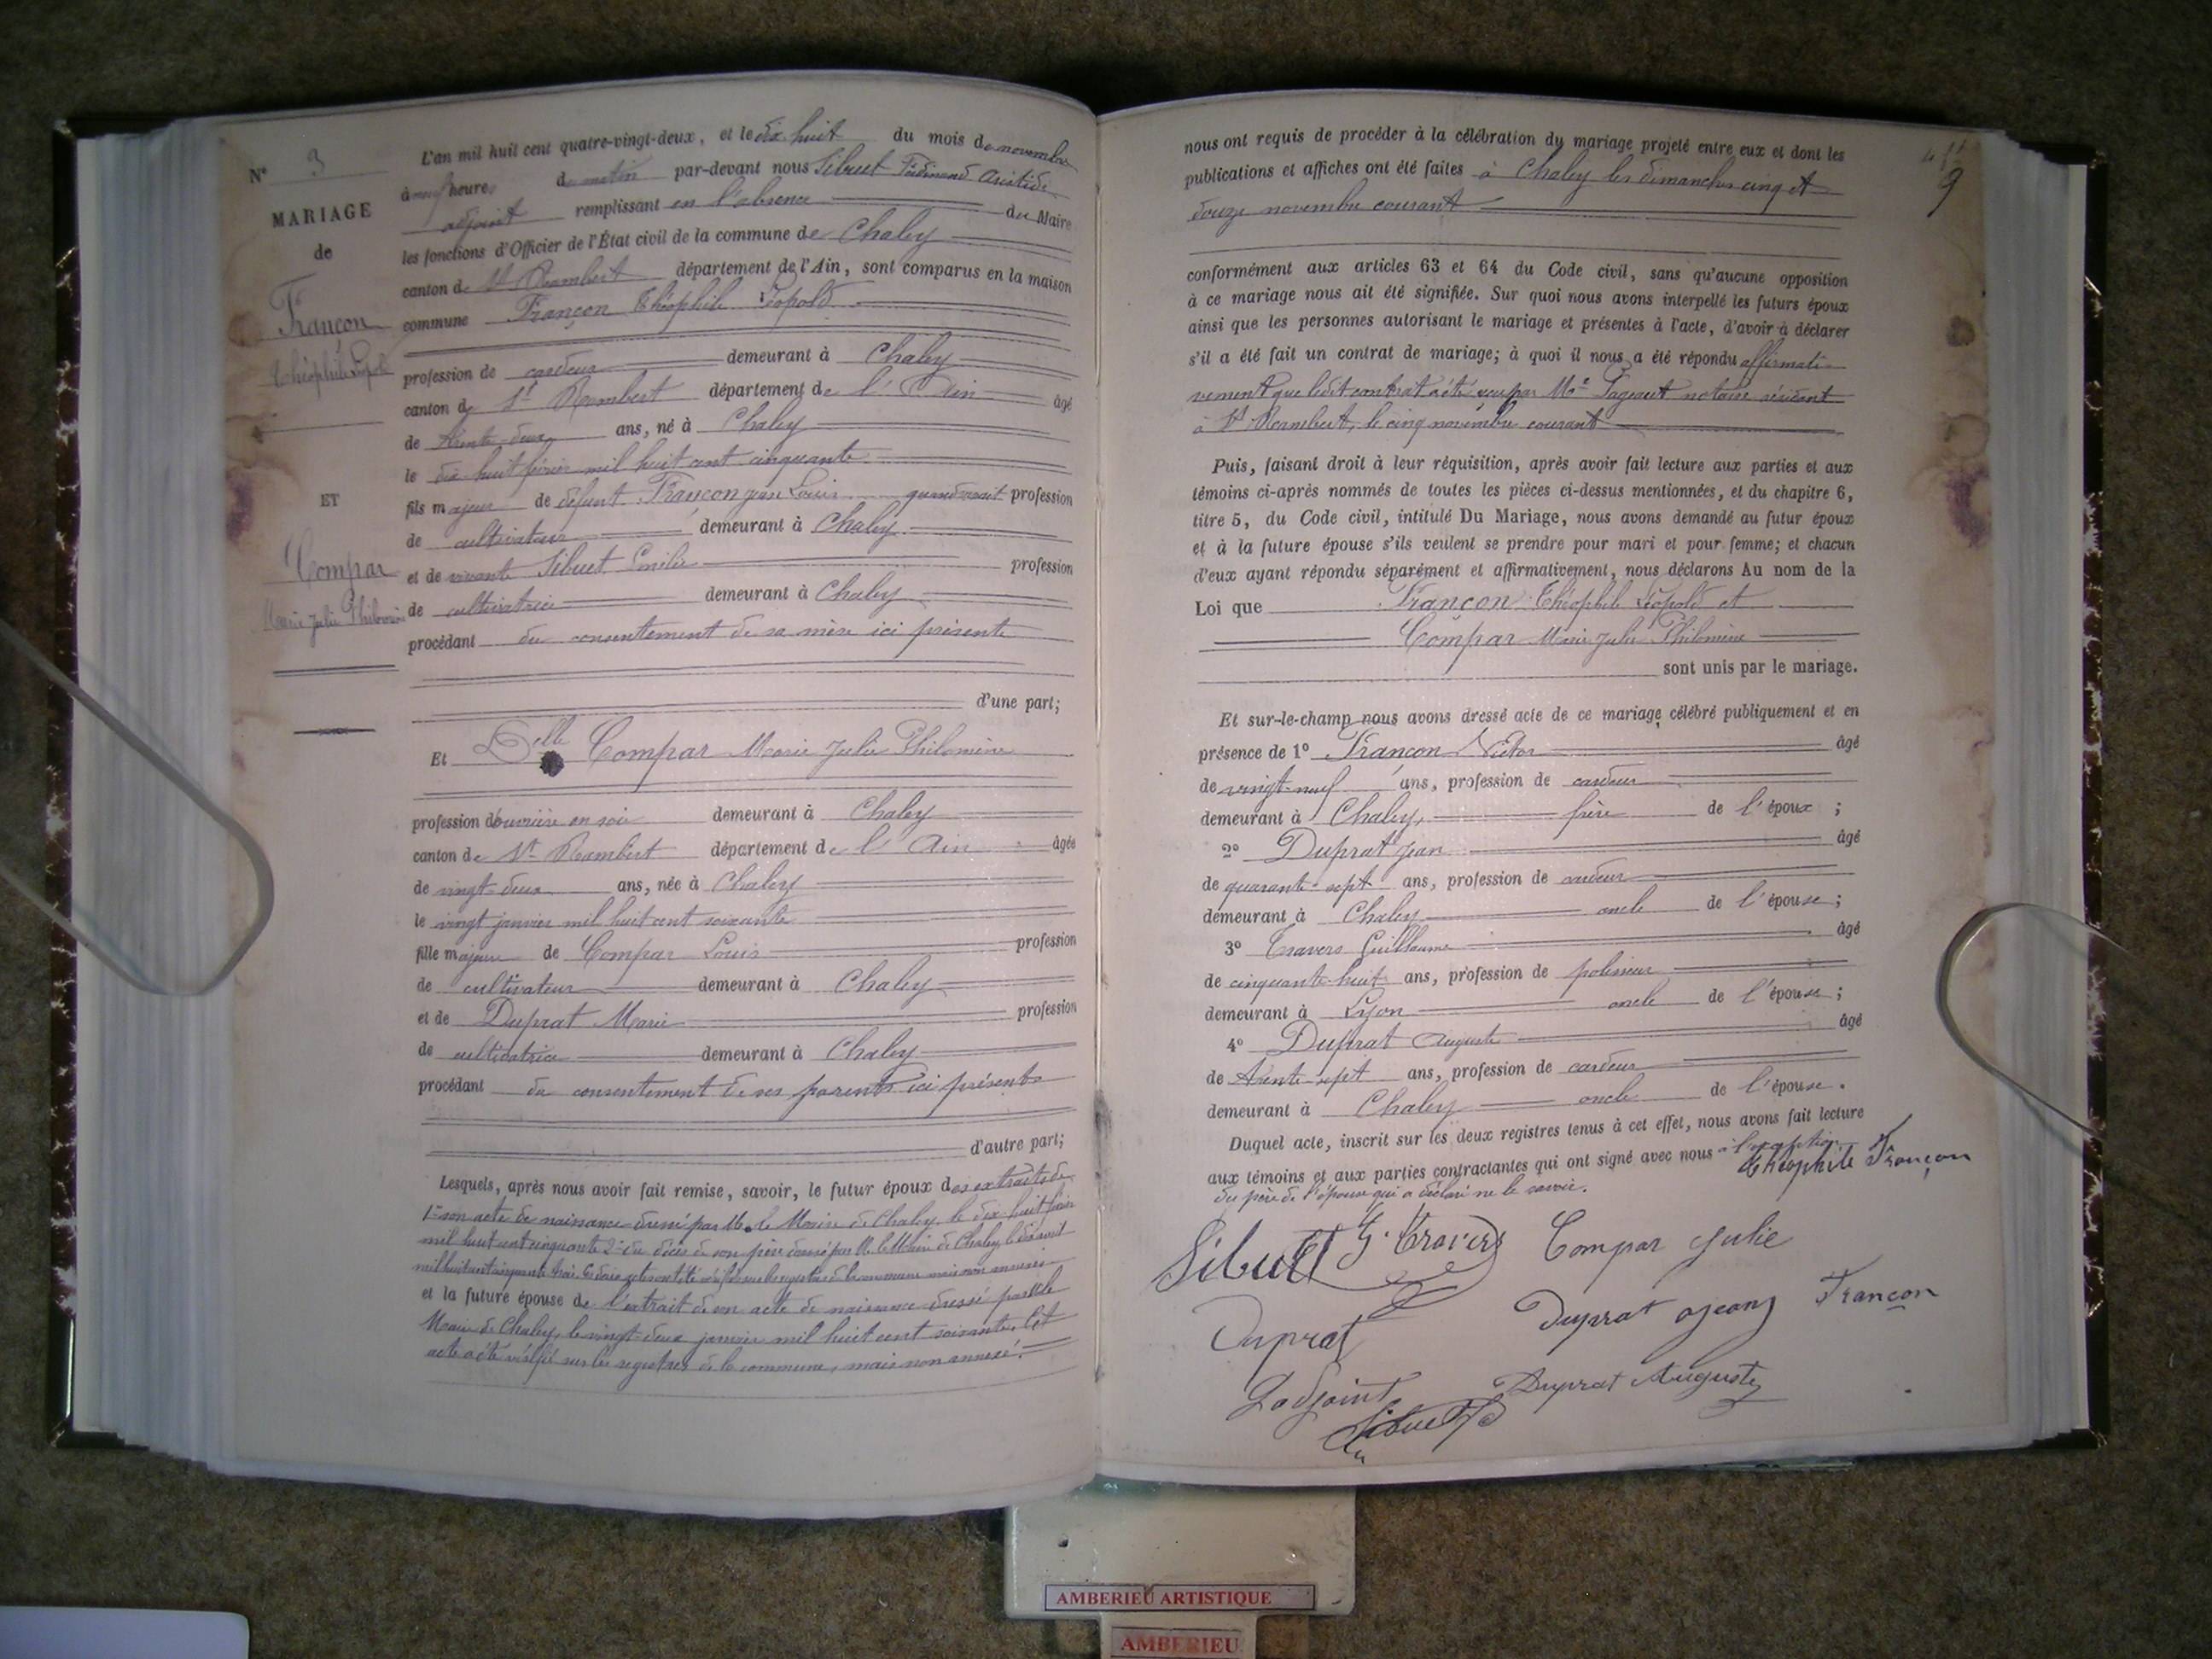 N° 3
MARIAGE
de
Françon
Théophile Léopold
ET
Compar
Marie Julie Philomène
L'an mil huit cent quatre-vingt-deux, et le dix huit du mois de novembre
à neuf heures du matin par-devant nous Sibuet Ferdinand Aristide
adjoint remplissant en l'absence du Maire
les fonctions d'Officier de l'État civil de la commune de Chaley
canton de St Rambert département de l'Ain, sont comparus en la maison
commune Françon Théophile Léopold
profession de cardeur demeurant à Chaley
canton de St Rambert département de l'Ain âgé
de trente-deux ans, né à Chaley
le dix huit février mil huit cent cinquante
fils majeur de défunt Françon Jean Louis quand vivait profession
de cultivateur demeurant à Chaley
et de vivante Sibuet Emilie profession
de cultivatrice demeurant à Chaley
procédant du consentement de sa mère ici présente
d'une part;
Et Delle Compar Marie Julie Philomène
profession d'ouvrière en soie demeurant à Chaley
canton de St Rambert département de l'Ain âgée
de vingt-deux ans, née à Chaley
le vingt janvier mil huit cent soixante
fille majeure de Compar Louis profession
de cultivateur demeurant à Chaley
et de Duprat Marie profession
de cultivatrice demeurant à Chaley
procédant du consentement de ses parents ici présents
d'autre part;
Lesquels, après nous avoir fait remise, savoir, le futur époux des extraits de
1° son acte de naissance dressé par M. le Maire de Chaley le dix huit février
mil huit cent cinquante 2° du décès de son père dressé par M. le Maire de Chaley
mil huit cent cinquante trois. Ces deux actes ont été vérifiés sur les registres de la commune mais non annexés
et la future épouse de l'extrait de son acte de naissance dressé par M. le
Maire de Chaley, le vingt-deux janvier mil huit cent soixante. Cet
acte a été vérifié sur les registres de la commune, mais non annexé.
9
nous ont requis de procéder à la célébration du mariage projeté entre eux et dont les
publications et affiches ont été faites à Chaley les dimanches cinq et
douze novembre courant
conformément aux articles 63 et 64 du Code civil, sans qu'aucune opposition
à ce mariage nous ait été signifiée. Sur quoi nous avons interpellé les futurs époux
ainsi que les personnes autorisant le mariage et présentes à l'acte, d'avoir à déclarer
s'il a été fait un contrat de mariage; à quoi il nous a été répondu affirmati-
vement que ledit contrat a été reçu par Me Pageaut notaire résidant
à St Rambert, le cinq novembre courant
Puis, faisant droit à leur réquisition, après avoir fait lecture aux parties et aux
témoins ci-après nommés de toutes les pièces ci-dessus mentionnées, et du chapitre 6,
titre 5, du Code civil, intitulé Du Mariage, nous avons demandé au futur époux
et à la future épouse s'ils veulent se prendre pour mari et pour femme; et chacun
d'eux ayant répondu séparément et affirmativement, nous déclarons Au nom de la
Loi que Françon Théophile Léopold et
Compar Marie Julie Philomène
sont unis par le mariage.
Et sur-le-champ nous avons dressé acte de ce mariage célébré publiquement et en
présence de 1° Françon Victor âgé
de vingt-neuf ans, profession de cardeur
demeurant à Chaley, frère de l'époux ;
2° Duprat Jean âgé
de quarante-sept ans, profession de cardeur
demeurant à Chaley oncle de l'épouse ;
3° Travers Guillaume âgé
de cinquante-huit ans, profession de polisseur
demeurant à Lyon oncle de l'épouse ;
4° Duprat Auguste âgé
de trente-sept ans, profession de cardeur
demeurant à Chaley oncle de l'épouse.
Duquel acte, inscrit sur les deux registres tenus à cet effet, nous avons fait lecture
aux témoins et aux parties contractantes qui ont signé avec nous à l'exception
du père de l'épouse qui a déclaré ne le savoir.
Théophile Françon
Sibuet G. Travers Compar Julie
Duprat Duprat Jean Françon
L'adjoint Duprat Auguste
Sibuet
AMBERIEU ARTISTIQUE
AMBERIEU